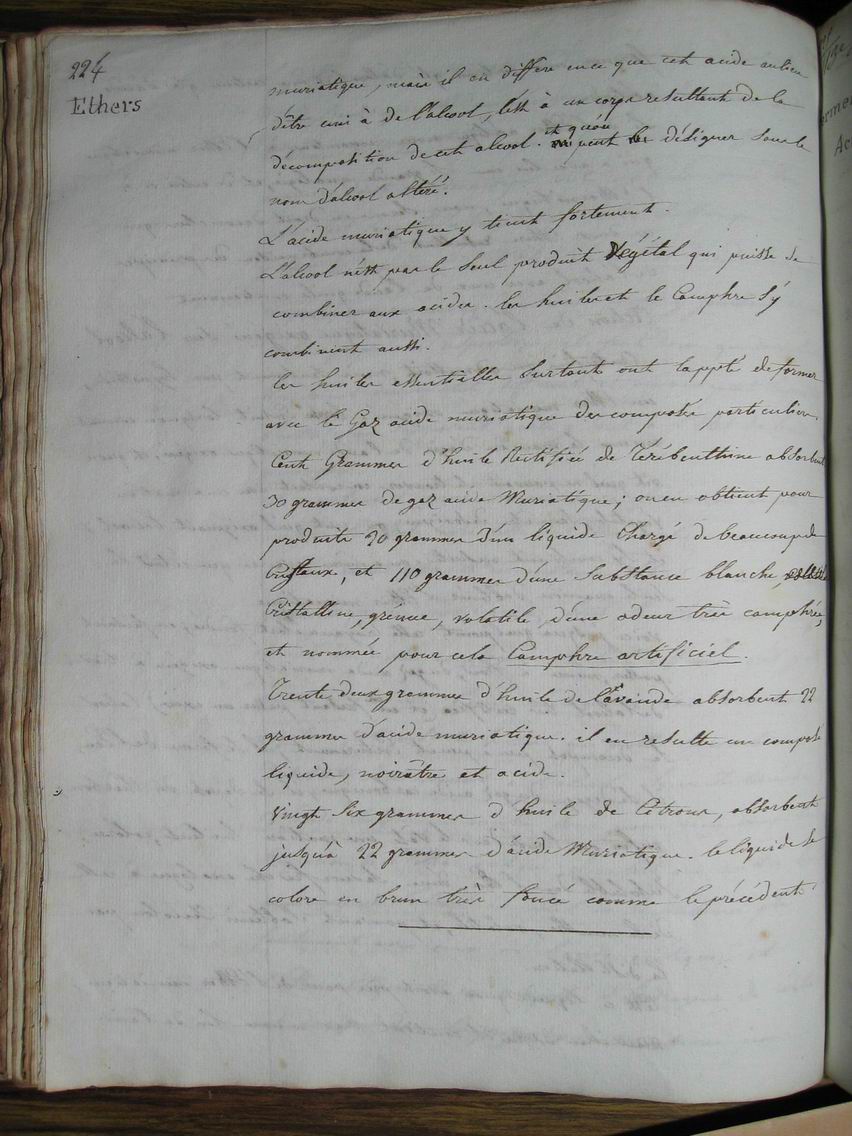 224
Ethers
muriatique, mais il en differe en ce que cet acide au lieu
d'être uni à de l'alcool, l'est à un corps resultant de la
décomposition de cet alcool. et qu'on peut désigner sous le
nom d'alcool altéré.
L'acide muriatique y tient fortement.
L'alcool n'est pas le seul produit Végétal qui puisse se
combiner aux acides. les huiles et le Camphre s'y
combinent aussi.
les huiles essentielles surtout ont la ppté de former
avec le Gaz acide muriatique des composés particuliers.
Cent Grammes d'huile Rectifiée de Térébenthine absorbent
30 grammes de gaz acide Muriatique; on en obtient pour
produits 20 grammes d'un liquide Chargé de beaucoup de
Cristaux, et 110 grammes d'une substance blanche,
Cristalline, grénue, volatile d'une odeur très camphrée,
et nommée pour cela Camphre artificiel.
Trente deux grammes d'huile de lavande absorbent 22
grammes d'acide muriatique. il en resulte un composé
liquide, noirâtre et acide.
Vingt six grammes d'huile de Citrons, absorbent
jusqu'à 22 grammes d'acide Muriatique. le liquide se
colore en brun très foncé comme le précédent.